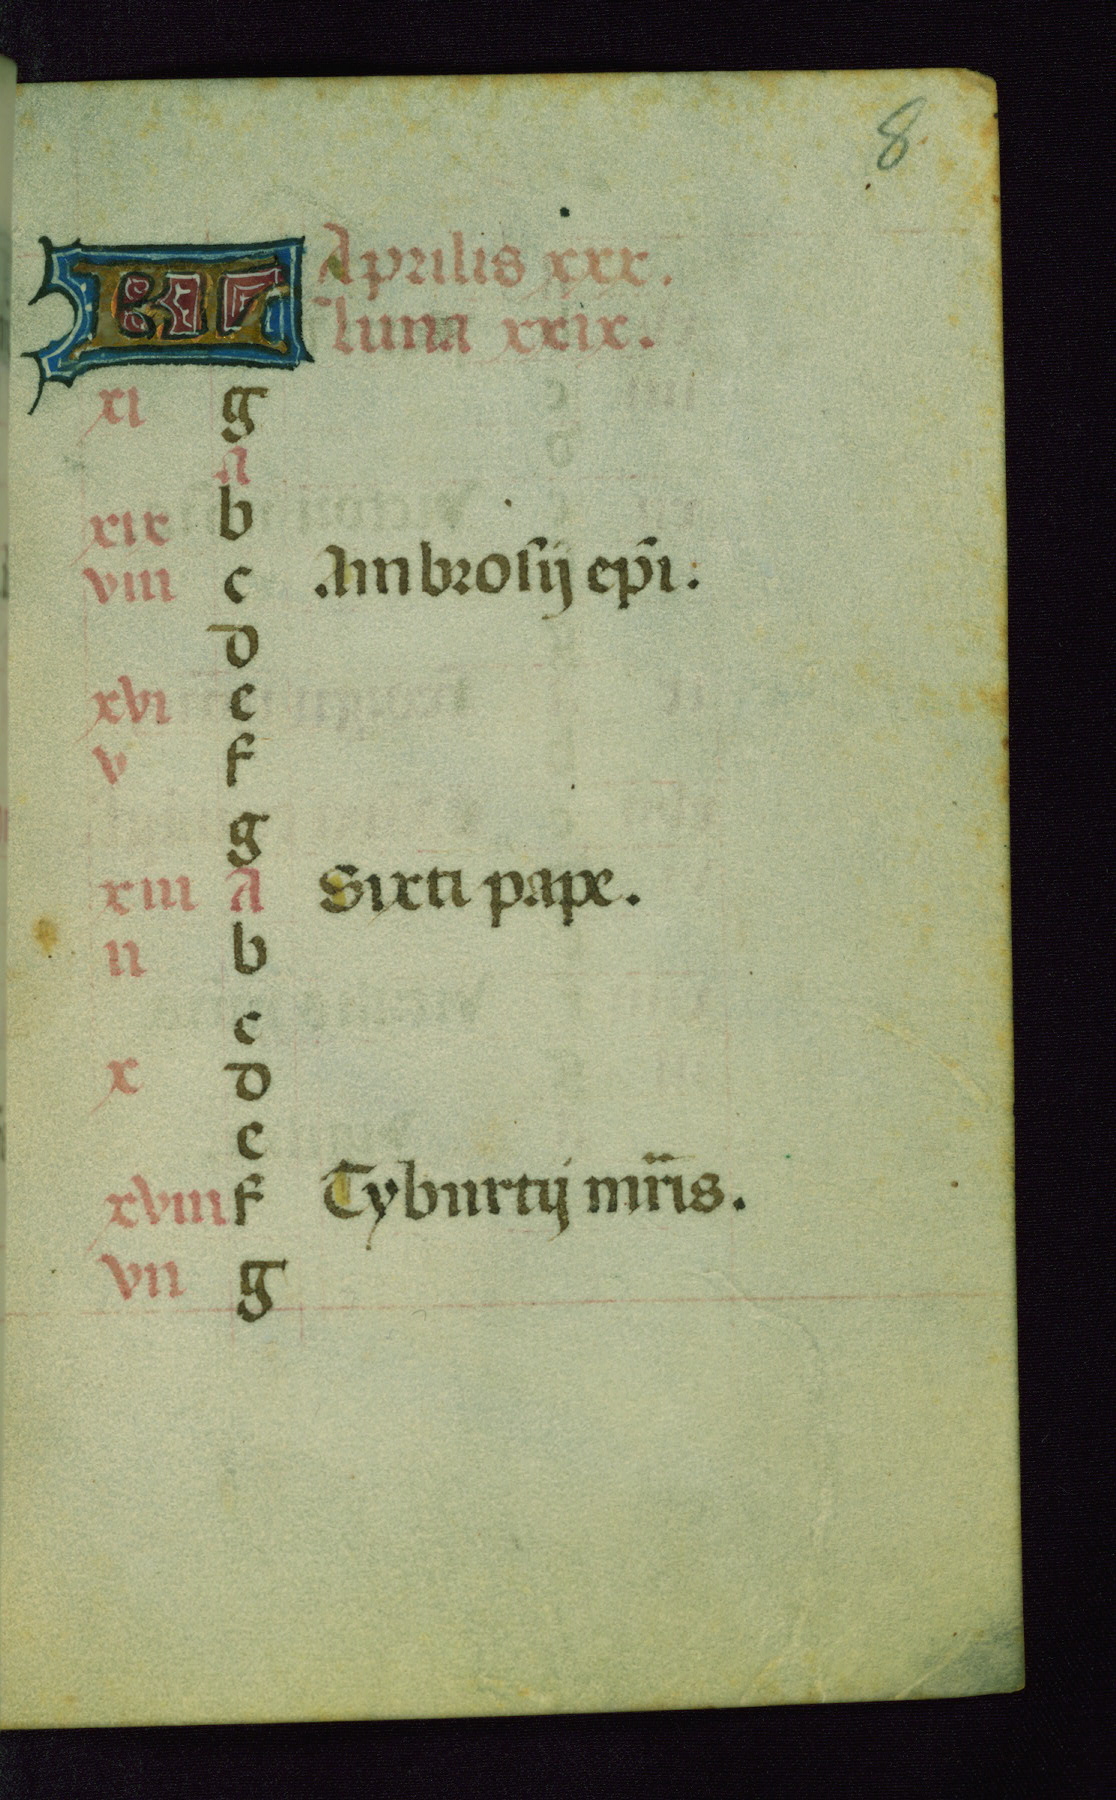 8
KL Aprilis xxx.
luna xxix.
xi g
A
xix b
viii c Ambrosij ep̃i.
d
xvi e
v f
g
xiii A Sixti pape.
ii b
c
x d
e
xviii f Tyburtij mr̃is.
vii g